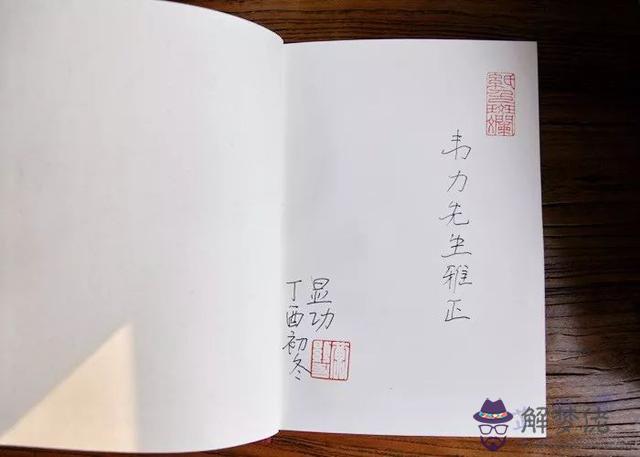 韦力先生雅正
显功
丁酉初冬
解梦佬